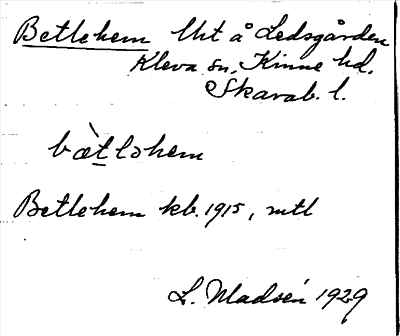 Betlehem lht å Ledsgården
Kleva sn, Kinne hd.
Skarab. l.
bæ̀tləhem
Betlehem kb. 1915, mtl
L. Madsén 1929